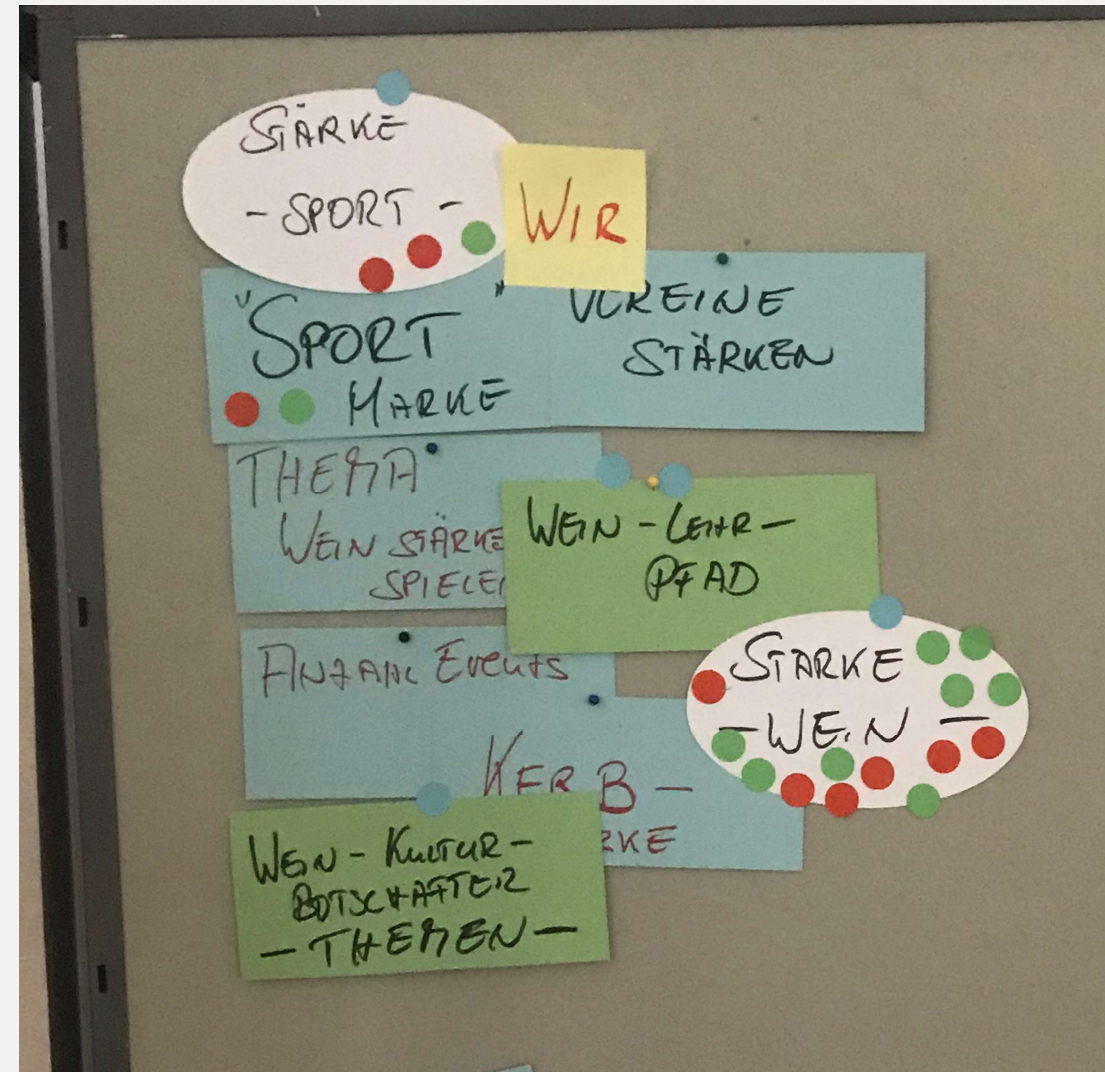 STÄRKE
- SPORT -
WIR
"SPORT"
MARKE
VEREINE
STÄRKEN
THEMA
WEIN STÄRKE
SPIELE
WEIN - LEHR -
PFAD
ANZAHL Events
STÄRKE
- WEIN -
KERB -
RKE
WEIN - KULTUR -
BOTSCHAFTER
- THEMEN -